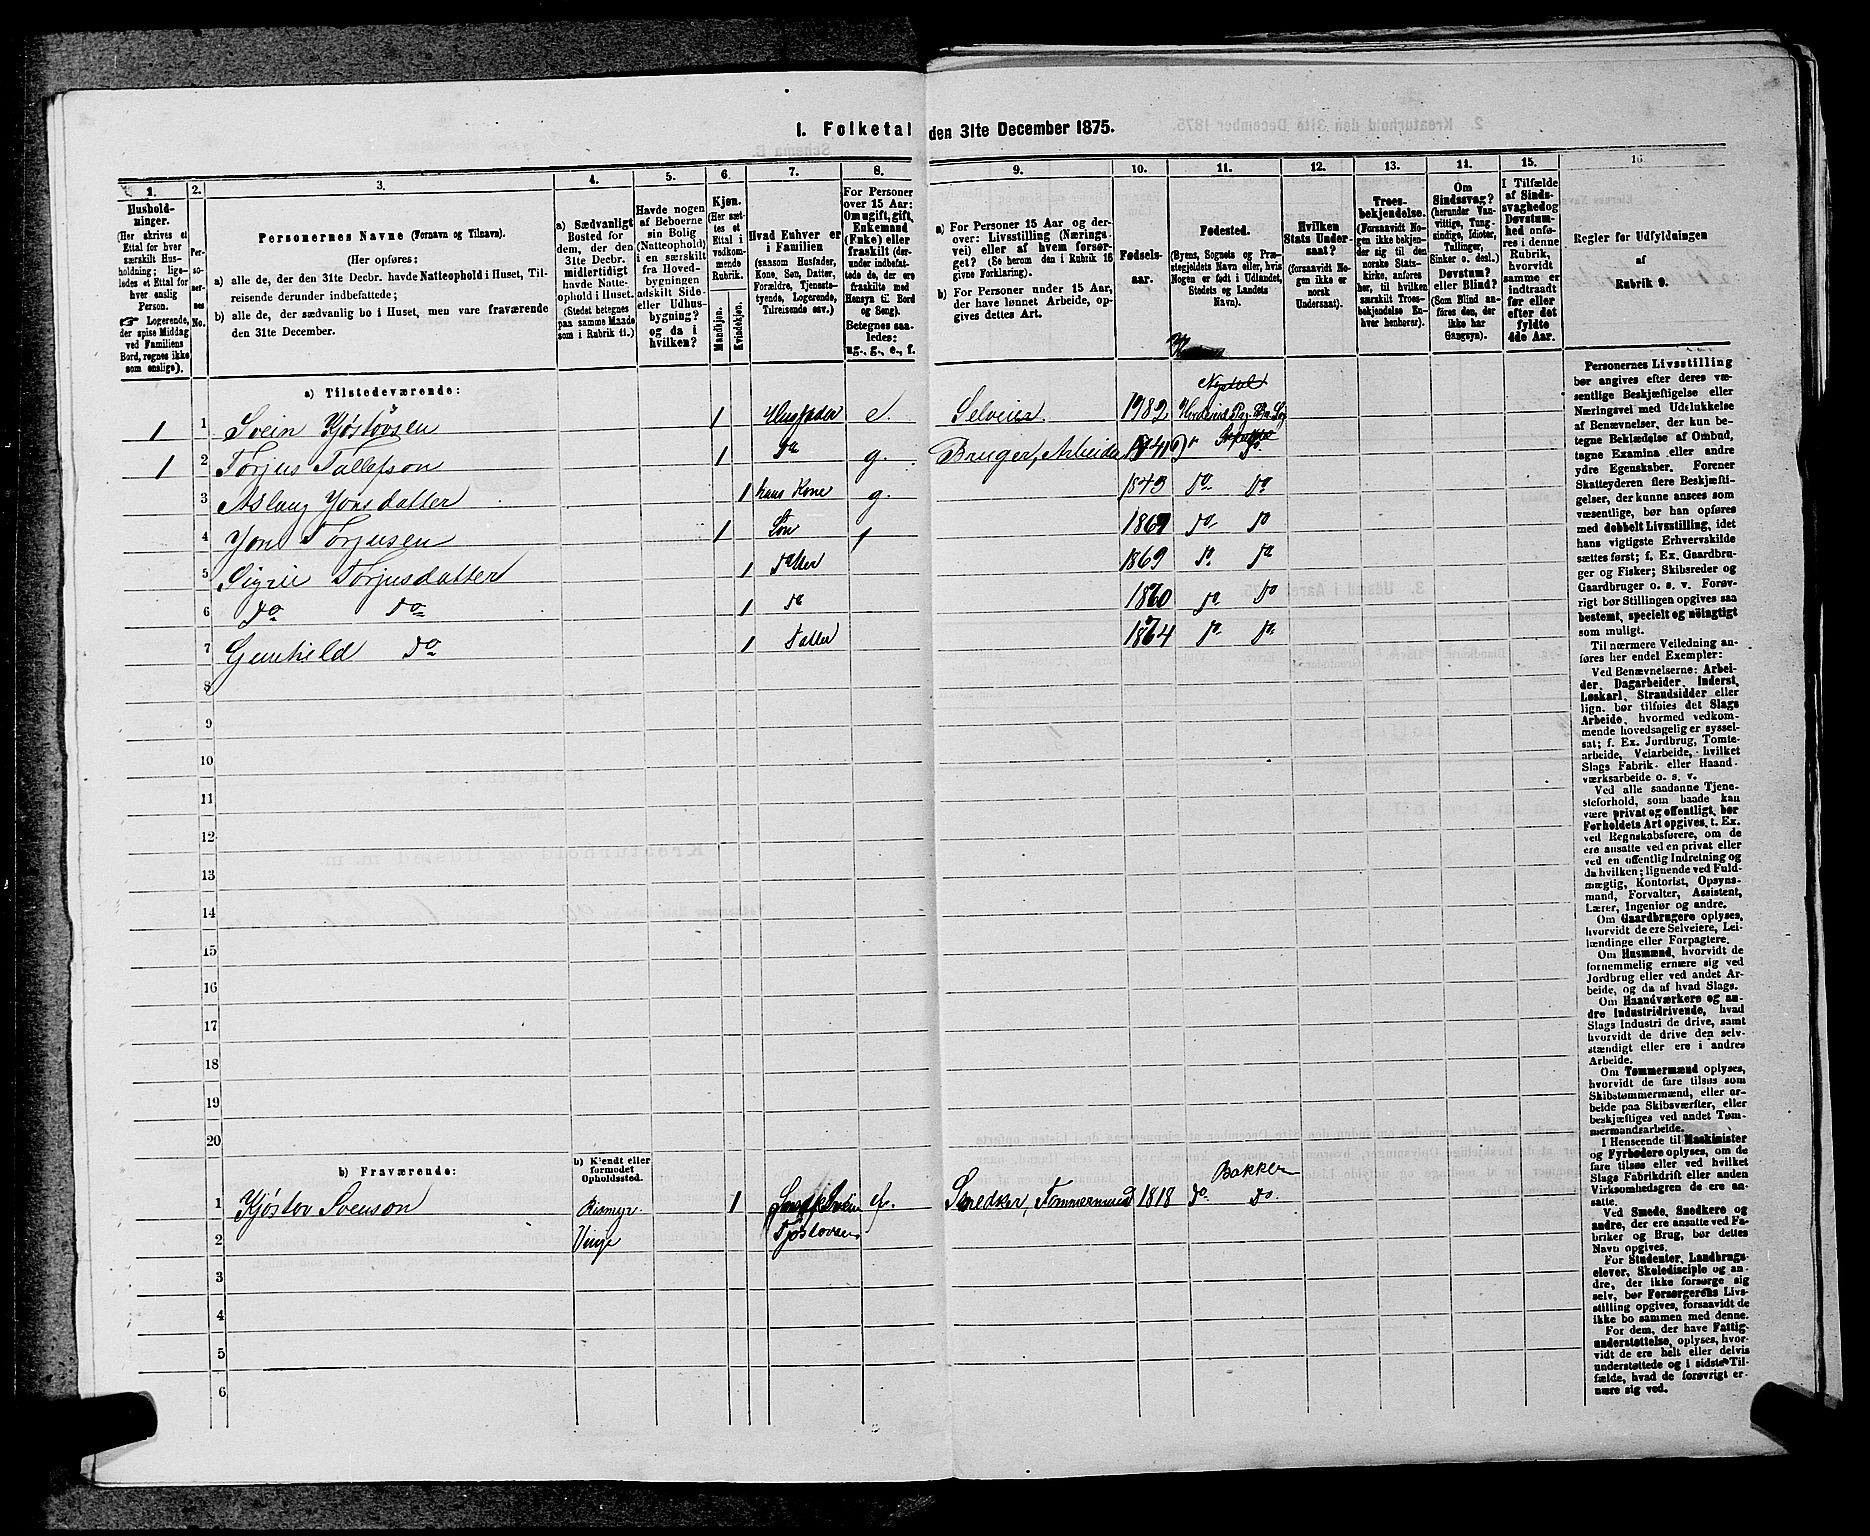 1. Folketal den 31te December 1875.
1.
2.
3.
4.
5.
6.
7.
8.
9.
10.
11.
12.
13.
14.
15.
16
Husholdninger.
(Her skrives et
Ettal for hver
særskilt Husholdning;
ligeledes et Ettal for
hver enslig
Person.
Logerende,
der spise Middag
ved Familiens
Bord, regnes ikke
som enslige).
Personernes No.
Personernes Navne (Fornavn og Tilnavn).
(Her opføres:
a) alle de, der den 31te Decbr. havde Natteophold i Huset, Tilreisende derunder indbefattede;
b) alle de, der sædvanlig bo i Huset, men vare fraværende
den 31te December.
a) Sædvanligt
Bosted for
dem, der den
31te Decbr.
midlertidigt
havde Natteophold i Huset.
(Stedet betegnes
paa samme Maade
som i Rubrik 11.)
Havde nogen
af Beboerne
sin Bolig
(Natteophold)
i en særskilt
fra Hovedbygningen
adskilt Side-
eller Udhusbygning?
og da i
hvilken?
Kjøn.
(Her sættes et
Ettal i
vedkommende
Rubrik.
Mandkjøn.
Kvindekjøn.
Hvad Enhver er
i Familien
(saasom Husfader,
Kone, Søn, Datter,
Forældre, Tjenestetyende, Logerende,
Tilreisende osv.)
For Personer
over 15 Aar:
Om ugift, gift,
Enkemand
(Enke) eller
fraskilt (derunder indbefattede de, der ere
fraskilte med
Hensyn til Bord
og Seng).
Betegnes saaledes:
ug., g., e., f.
a) For Personer 15 Aar og derover: Livsstilling (Næringsvei) eller af hvem forsørget? (Se herom den i Rubrik 16
givne Forklaring).
b) For Personer under 15 Aar,
der have lønnet Arbeide, opgives dettes Art.
Fødselsaar.
Fødested.
(Byens, Sognets og Præstegjeldets Navn eller, hvis
Nogen er født i Udlandet,
Stedets og Landets
Navn).
Hvilken
Stats Undersaat?
(forsaavidt Nogen ikke er
norsk
Undersaat).
Troesbekjendelse.
(Forsaavidt Nogen ikke bekjender sig til den
norske Statskirke, anføres
her, til hvilken
særskilt Troesbekjendelse Enhver henhører).
Om
Sindssvag?
(herunder Vanvittige, Tungsindige, Idioter,
Tullinger,
Sinker o. desl.)
Døvstum?
eller Blind?
(Som Blind anføres den, der
ikke har
Gangsyn).
I Tilfælde
af Sindssvaghed og
Døvstumhed omføres i denne
Rubrik,
hvorvidt
samme er
indtraadt
før eller
efter det
fyldte
4de Aar.
Regler for Udfyldningen
af
Rubrik 9.
a) Tilstedeværende:
1 1 Svein Kjøstovsen 1 Husfader e. Selveier 1782
1 2 Torjus Tallefson 1 Do g. Bruger, Arbeider 1841 Do
3 Aslaug Jonsdatter 1 hans Kone g. 1843 Do Do
4 Jon Torjusen 1 Søn 1 1867 Do Do
5 Sigrie Torjusdatter 1 Datter 1869 Do Do
6 Do Do 1 Do 1860 Do Do
7 Gunhild Do 1 Datter 1864 Do Do
8
9
10
11
12
13
14
15
16
17
18
19
20
b) Fraværende:
b) Kjendt eller
formodet
Opholdssted.
Bakken
1 Kjøstov Svenson 1 Snedker, Tømmermand 1818 Do Do
2 Vinje Tjøstovsen
3
4
5
6
Personernes Livsstilling
bør angives efter deres væsentlige Beskjæftigelse eller
Næringsvei med Udelukkelse
af Benævnelser, der kun betegne Beklædelse af Ombud,
tagne Examina eller andre
ydre Egenskaber. Forener
Skatteyderen flere Beskjæftigelser, der kunne ansees som
væsentlige, bør han opføres
med dobbelt Livsstilling, idet
hans vigtigste Erhvervskilde
sættes først; f. Ex. Gaardbruger og Fisker; Skibsreder og
Gaardbruger o. s. v. Forøvrigt bør Stillingen opgives saa
bestemt, specielt og nöiagtigt
som muligt.
Til nærmere Veiledning anføres her endel Exempler:
Ved Benævnelserne: Arbeider, Dagarbeider, Inderst,
Løskarl, Strandsidder eller
lign. bør tilføies det Slags
Arbeide, hvormed vedkommende hovedsagelig er sysselsat; f. Ex. Jordbrug, Tomtearbeide, Veiarbeide, hvilket
Slags Fabrik- eller Haandværksarbeide o. s. v.
Ved alle saadanne Tjenesteforhold, som baade kan
være privat og offentligt, bør
Forholdets Art opgives, t. Ex.
ved Regnskabsførere, om de
ere ansatte ved en privat eller
ved en offentlig Indretning og
da hvilken; lignende ved Fuldmægtig, Kontorist, Opsynsmand, Forvalter, Assistent,
Lærer, Ingeniør og andre.
Om Gaardbrugere oplyses,
hvorvidt de ere Selveiere, Leilændinge eller Forpagtere.
Om Husmænd, hvorvidt de
fornemmelig ernære sig ved
Jordbrug eller ved andet Arbeide, og da af hvad Slags.
Om Haandværkere og andre Industridrivende, hvad
Slags Industri de drive, samt
hvorvidt de drive den selvstændigt eller ere i andres
Arbeide.
Om Tømmermænd oplyses,
hvorvidt de fare tilsøs som
Skibstømmermænd, eller arbeide paa Skibsværfter, eller
beskjæftiges ved andet Tømmermandsarbeide.
I Henseende til Maskinister
og Fyrbødere oplyses, om de
fare tilsøs eller ved hvilket
Slags Fabrikdrift eller anden
Virksomhedsgren de ere ansatte.
Ved Smede, Snedkere og
andre, der ere ansatte ved Fabriker og Brug, bør dettes
Navn opgives.
For Studenter, Landbrugselever, Skoledisciple og andre, der ikke forsørge sig
selv, bør Forsørgerens Livsstilling opgives, forsaavidt de
ikke bo sammen med denne.
For dem, der have Fattigunderstøttelse, oplyses, hvorvidt de ere helt eller delvis
understøttede og i sidste Tilfælde, hvad de forøvrigt ernære sig ved.